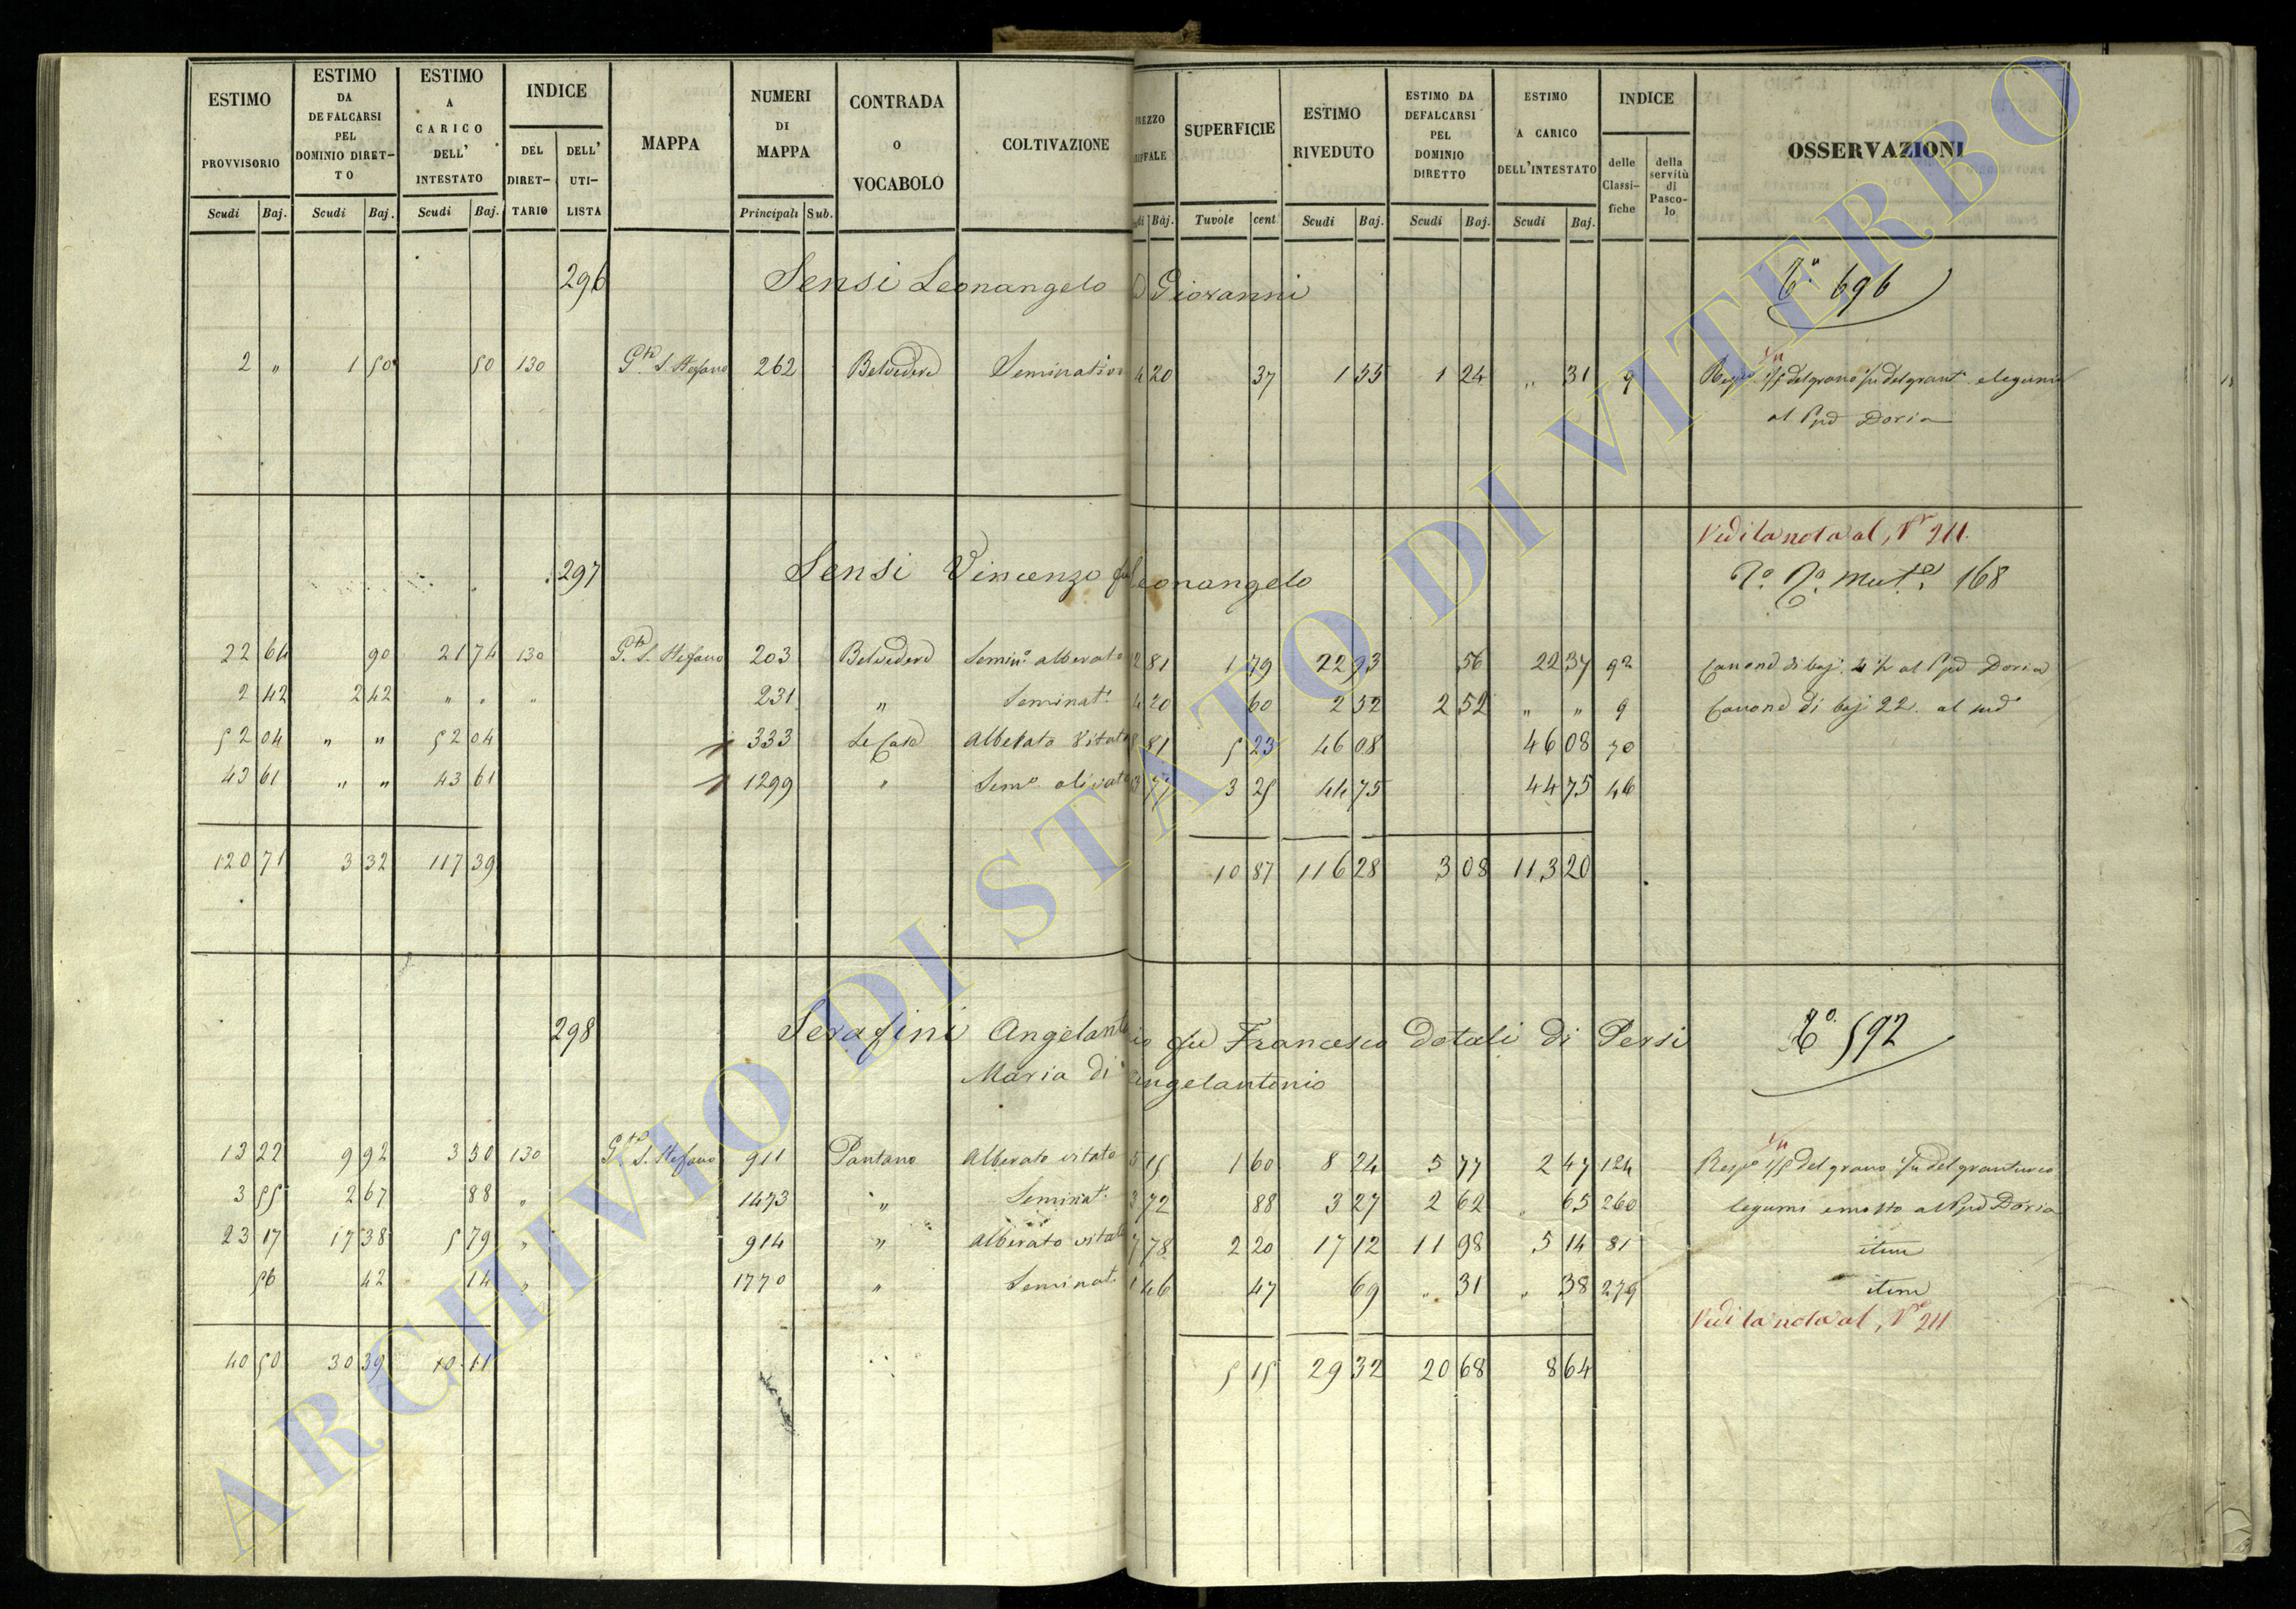 ESTIMO PROVVISORIO | ESTIMO DA DEFALCARSI PEL DOMINIO DIRET-TO | ESTIMO A CARICO DELL' INTESTATO | INDICE DEL DIRET-TARIO | DELL' UTI-LISTA | MAPPA | NUMERI DI MAPPA | CONTRADA O VOCABOLO | COLTIVAZIONE | SUPERFICIE | ESTIMO RIVEDUTO | ESTIMO DA DEFALCARSI PEL DOMINIO DIRETTO | ESTIMO A CARICO DELL'INTESTATO | INDICE delle Classi-fiche | della servitù di Pasco-lo | OSSERVAZIONI
Scudi Baj. Scudi Baj. Scudi Baj. Principali Sub. Baj. Tuvole cent Scudi Baj. Scudi Baj. Scudi Baj.
296 Sensi Leonangelo Giovanni 696
2 " 1 50 50 130 S. Stefano 262 Belvedere Seminativo 4 20 37 1 55 1 24 " 31 9 1/5 del grano del grant. e legumi
al Doria
Vedi la nota al N 211.
297 Sensi Vincenzo fu Leonangelo 168
22 64 90 21 74 130 S. Stefano 203 Belvedere Semin.o alberato 12 81 1 79 22 93 56 22 37 92 Canone di baj. al Doria
2 42 2 42 " " " 231 " Seminat. 4 20 60 2 52 2 52 " " 9 Canone di baj 22 al sud
52 04 " " 52 04 333 Le Case Alberato Vitato 8 81 5 23 46 08 46 08 70
43 61 " " 43 61 1299 " Sem.o olivato 13 77 3 25 44 75 44 75 46
120 71 3 32 117 39 10 87 116 28 3 08 113 20
298 Serafini Angelantonio fu Francesco Dotali di Persi 592
Maria di Angelantonio
13 22 9 92 3 30 130 S. Stefano 911 Pantano Alberato vitato 5 15 1 60 8 24 5 77 2 47 124 1/5 del grano del granturco
3 55 2 67 88 " 1473 " Seminat. 3 72 88 3 27 2 62 " 65 260 legumi e mosto al Doria
23 17 17 38 5 79 " 914 " Alberato vitato 7 78 2 20 17 12 11 98 5 14 81 item
56 42 14 " 1770 " Seminat. 1 46 47 69 " 31 " 38 279 item
Vedi la nota al N 211
40 50 30 39 10 11 5 15 29 32 20 68 8 64
ARCHIVIO DI STATO DI VITERBO